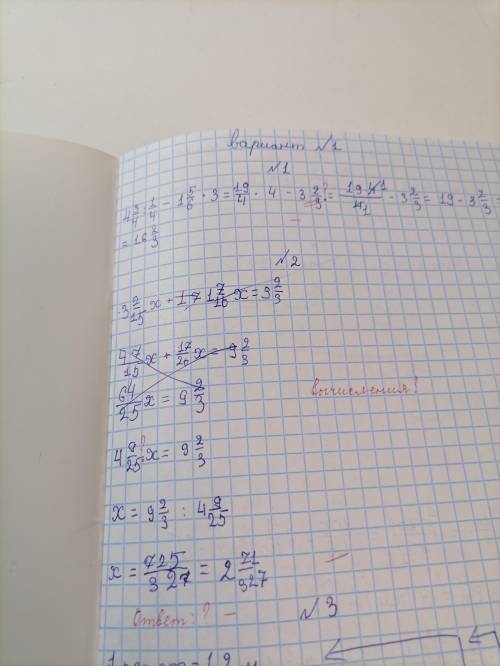 Вариант №1
№1
4 3/4 : 1/4 - 1 5/6 · 3 = 19/4 · 4 - 3 2/3 ? = 19·4/4 - 3 2/3 = 19 - 3 2/3 =
= 16 2/3
№2
3 2/15 x + 1 7/10 x = 9 2/3
47/15 x + 17/20 x = 9 2/3
64/25 x = 9 2/3
вычисления!
4 9/25 x = 9 2/3
x = 9 2/3 : 4 9/25
x = 725/327 = 2 71/327
Ответ: ? -
№3